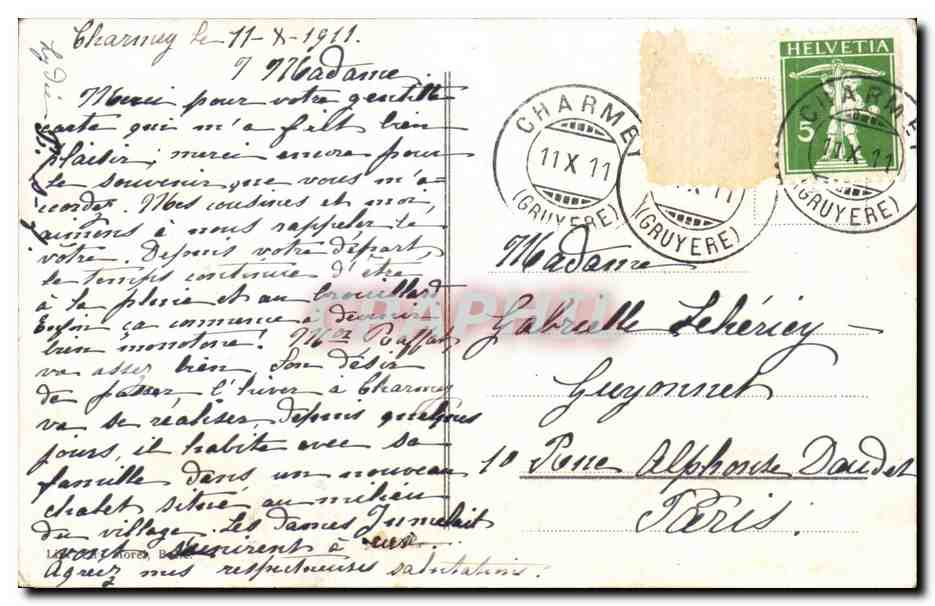 Charmey le 11-X-1911.
Madame,
Merci pour votre gentille
carte qui m'a fait bien
plaisir; merci encore pour
le souvenir que vous m'a=
cordez. Mes cousines et moi,
aimons à nous rappeler le
vôtre. Depuis votre départ,
le temps continue d'être
à la pluie et au brouillard
Enfin ça commence à devenir
bien monotone! Raffat,
va assez bien. Son désir
de passer, l'hiver à Charmey
va se réaliser, depuis quelques
jours, il habite avec sa
famille dans un nouveau
chalet situé au milieu
du village. Les dames Jumelait
vont à
Agréez mes respectueuses salutations.
HELVETIA
5
CHARMEY
11 X 11
(GRUYERE)
11
(GRUYERE)
CHARMEY
11 X 11
(GRUYERE)
CPAPHIL
Madame
Gabrielle Lehéricy -
Guyonnet
10 Rue Alphonse Daudet
Paris.